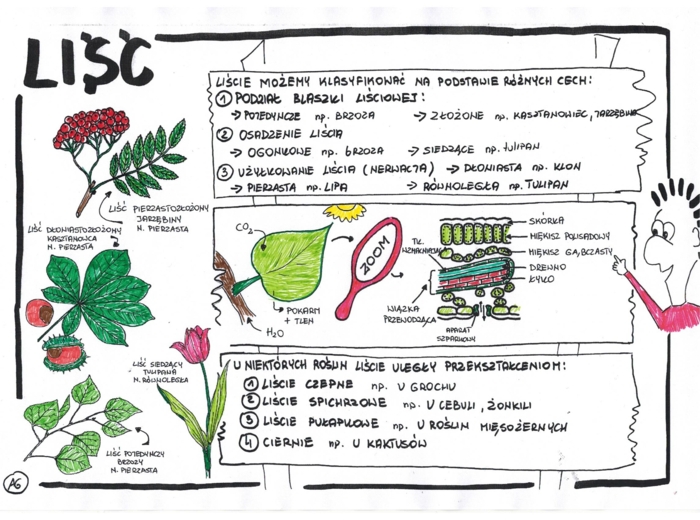 LIŚĆ
LIŚCIE MOŻEMY KLASYFIKOWAĆ NA PODSTAWIE RÓŻNYCH CECH:
1 PODZIAŁ BLASZKI LIŚCIOWEJ:
→ POJEDYNCZE np. BRZOZA → ZŁOŻONE np. KASZTANOWIEC, JARZĘBINA
2 OSADZENIE LIŚCIA
→ OGONKOWE np. BRZOZA → SIEDZĄCE np. tULIPAN
3 UŻYŁKOWANIE LIŚCIA (NERWACJA) → DŁONIASTA np. KLON
→ PIERZASTA np. LIPA → RÓWNOLEGŁA np. TULIPAN
LIŚĆ PIERZASTOZŁOŻONY
JARZĘBINY
N. PIERZASTA
LIŚĆ DŁONIASTOZŁOŻONY
KASZTANOWCA
N. PIERZASTA
CO2
POKARM
+ TLEN
H2O
ZOOM
TK.
WZMACNIAJĄCA
WIĄZKA
PRZEWODZĄCA
APARAT
SZPARKOWY
SKÓRKA
MIĘKISZ PALISADOWY
MIĘKISZ GĄBCZASTY
DREWNO
ŁYKO
LIŚĆ SIEDZĄCY
TULIPANA
N. RÓWNOLEGŁA
LIŚĆ POJEDYNCZY
BRZOZY
N. PIERZASTA
U NIEKTÓRYCH ROŚLIN LIŚCIE ULEGŁY PRZEKSZTAŁCENIOM:
1 LIŚCIE CZEPNE np. U GROCHU
2 LIŚCIE SPICHRZOWE np. U CEBULI, ŻONKILI
3 LIŚCIE PUŁAPKOWE np. U ROŚLIN MIĘSOŻERNYCH
4 CIERNIE np. U KAKTUSÓW
AG